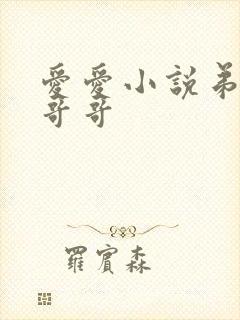 愛愛小説弟
哥哥
羅賓森